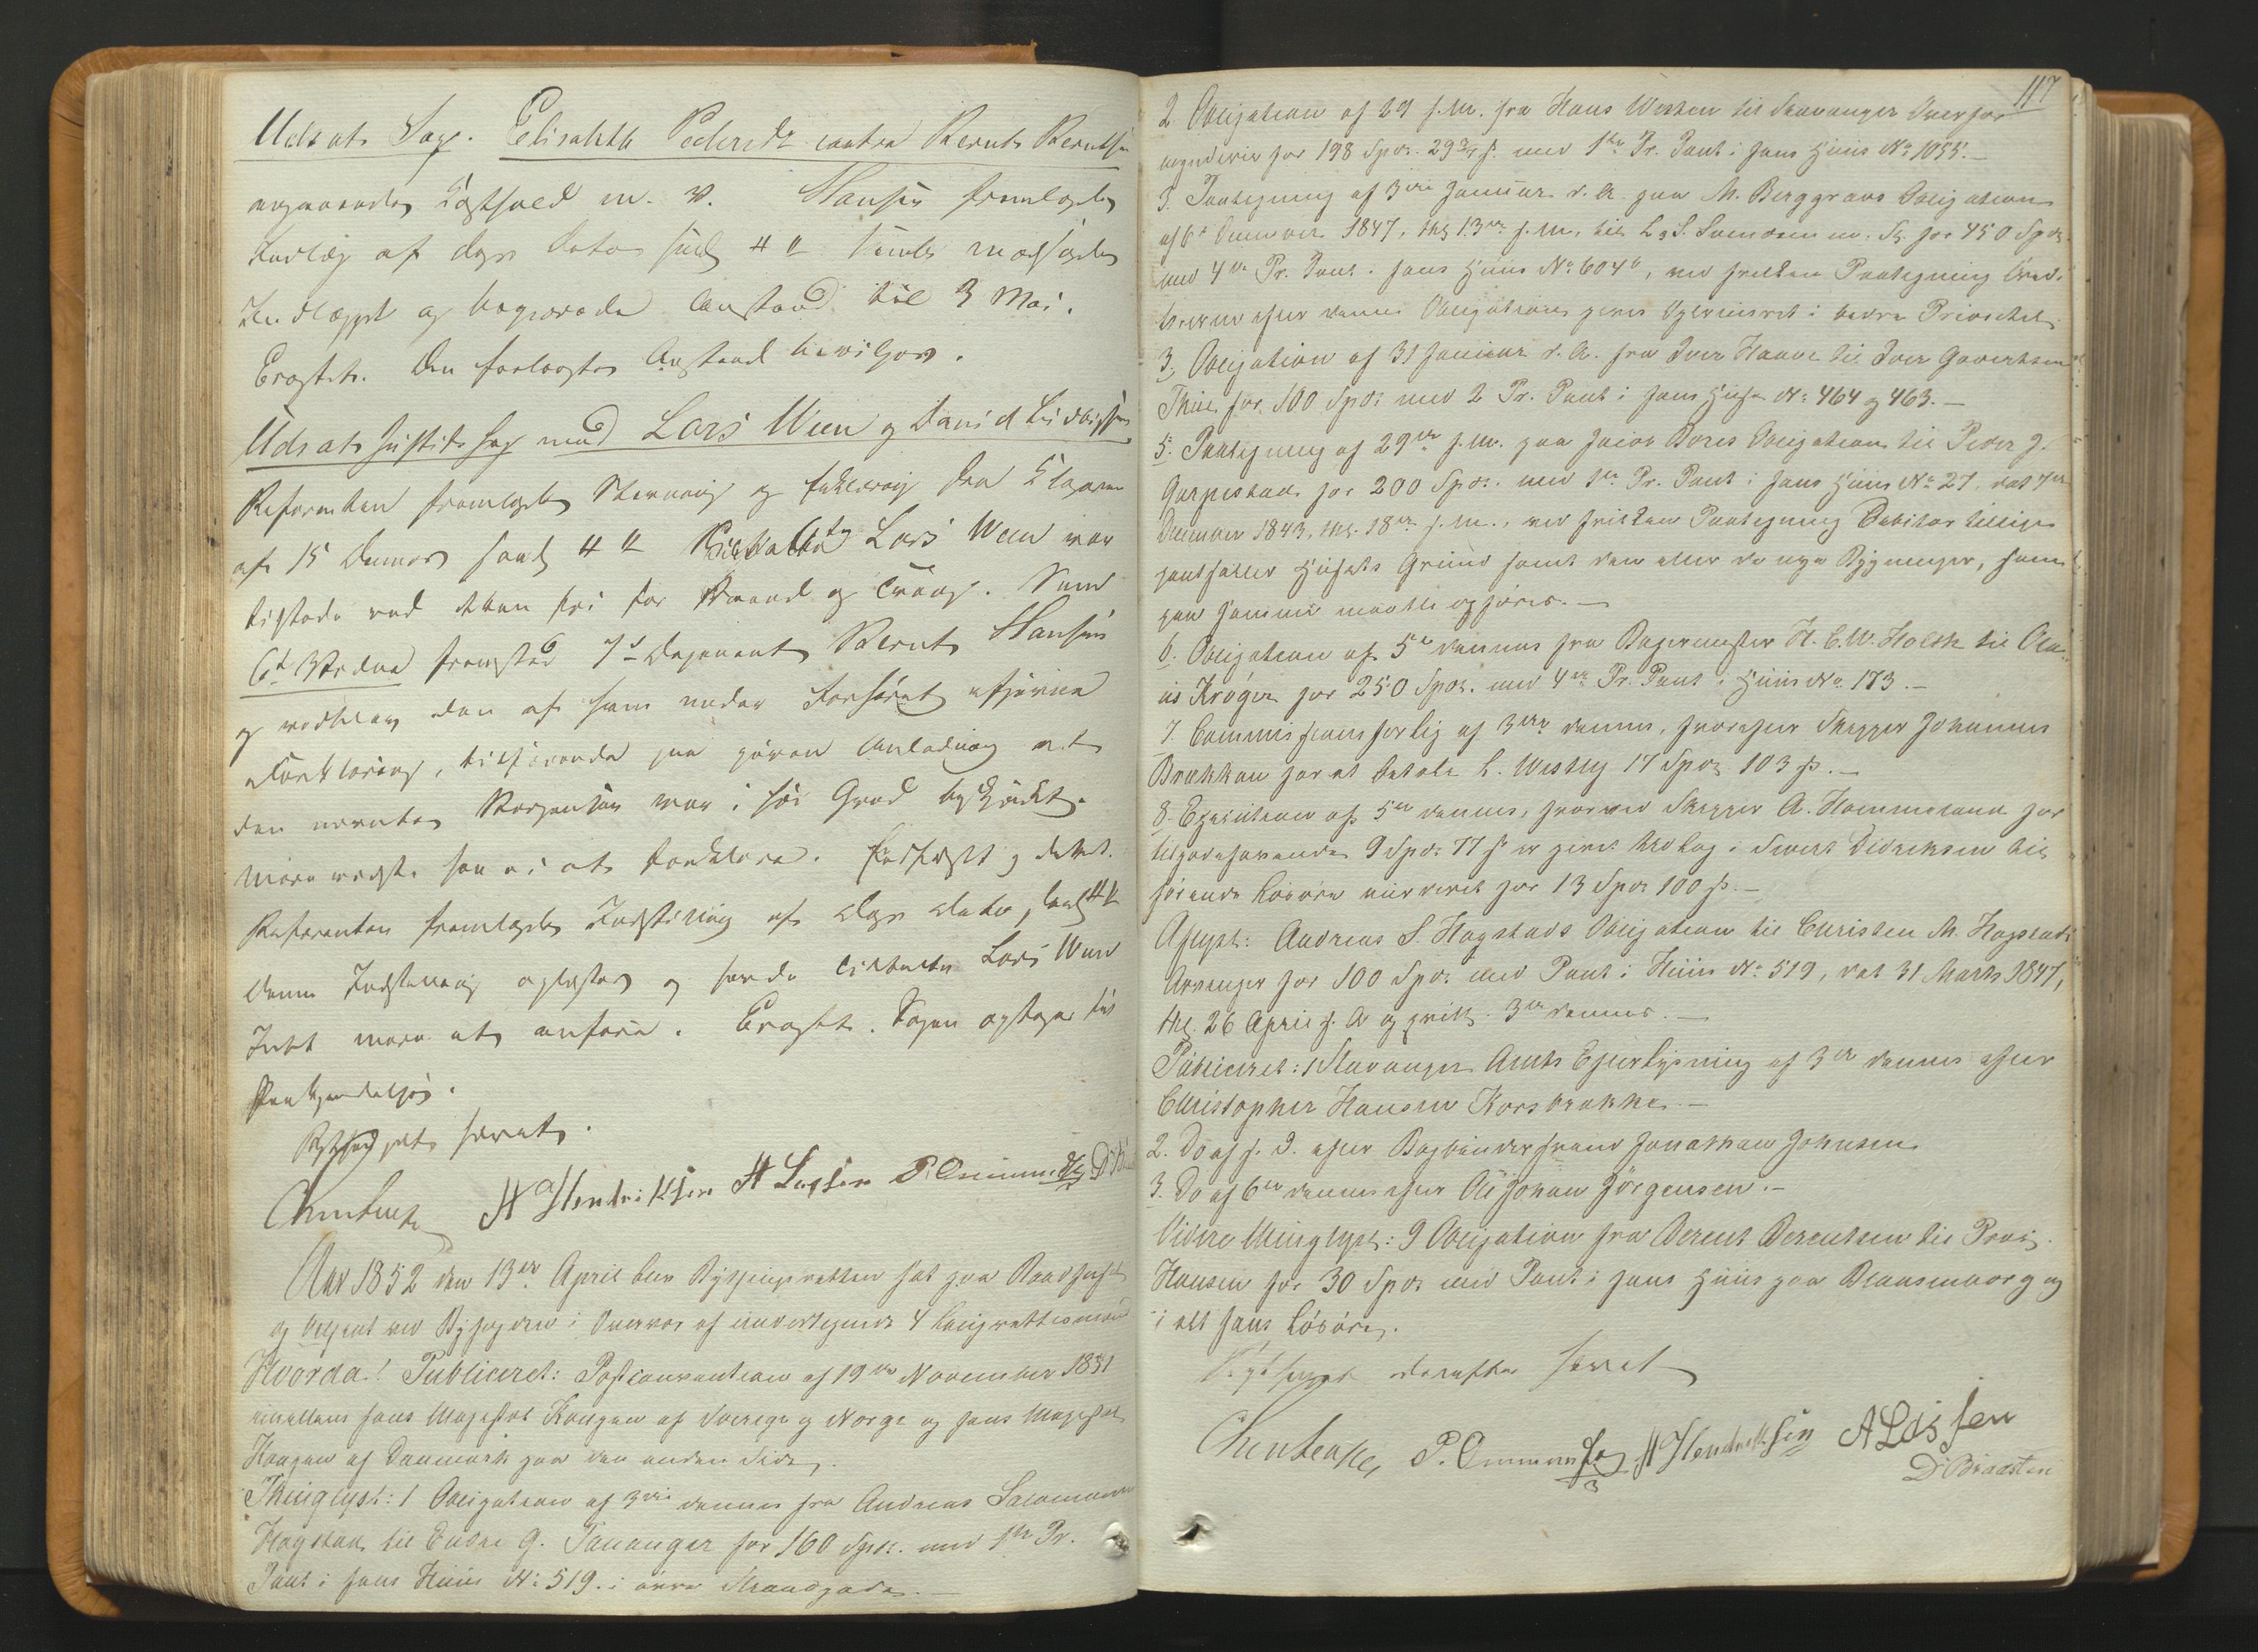 Udsat Sag. Elisabeth Pedersdr contra Bernt Berntsen
angaaende m. v. Hansen fremlagde
Indlæg af Dags Dato samt
Indlægget og begjærede Anstand til 3 Mai.
Eragtet. Den forlangte Anstand bevilges.
Udsat Justits Sag mod Lars Ween og David
Referenten fremlagde Stevning og
af 15 dennes Lars Ween var
tilstede ved Retten fri for Baand og Tvang. Som
6te Vidne fremstod Deponent Bernt Hansen
og vedblev den af ham under Forhøret afgivne
Forklaring, tilføiende paa given Anledning at
den nævnte var i høi Grad beskjænket.
Mere vidste han ei at forklare. og dimit.
Referenten fremlagde Indstilling af Dags Dato,
Denne Indstilling oplæstes og havde Tiltalte Lars Ween
Intet mere at anføre. Eragtet. Sagen optages til
Paakjendelse.
Retten hævet.
H Hendriksen A Lassen P. Ommundsen
Aar 1852 den 13de April blev Bythingsretten sat paa Raadhuset
og betjent ved Byfogden i Overvær af undertegnede 4 Laugrettesmænd
Hvorda! Publiceret: Postconvention af 19de November 1851
imellem Hans Majestæt Kongen af Sverige og Norge og Hans Majestæt
Kongen af Danmark paa den anden Side.
Thinglyst: 1 Obligation af 3die dennes fra Andreas Salomonsen
Hagstad til Endre G. Tananger for 160 Spdr. med 1ste Pr.
Pant i hans Huus No 519. i øvre Strandgade.—
117
2 Obligation af 29 f. M. fra Hans Westen til Stavanger Overfor-
mynderie for 198 Spdr. 29 ß. med 1ste Pr. Pant i hans Huus No 1055.—
3. Paategning af 3die Januar d. A. paa M. Berggravs Obligation
af 6te December 1847, thgl. 13de f. M. til L. S. Svendsen for 450 Spdr.
med 4de Pr. Pant i hans Huus No 604b, ved hvilken Paategning
efter denne Obligation gives i bedre Prioritet
3. Obligation af 31 Januar d. A. fra Iver Haave til Iver
for 100 Spdr med 2 Pr. Pant i hans Huse No 464 og 463.—
5. Paategning af 29de f. M. paa Jacob Bores Obligation til Peder J.
Garpestad for 200 Spdr. med 1ste Pr. Pant i hans Huus No 27. dat 7de
December 1843, thgl. 18de f. M., ved hvilken Paategning Debitor tillige
pantsætter Husets Grund samt den eller de nye Bygninger, som
paa samme maatte opføres.—
6. Obligation af 5te dennes fra Bagermester H. C. W. Holck til Cla-
us Krøger for 250 Spdr. med 4de Pr. Pant i Huus No 173.—
7. Commissionsforlig af 3die dennes, hvorefter Skipper Johannes
Brækkan har at betale L. Westly 17 Spdr 103 ß.—
8. Execution af 5te dennes, hvorved Skipper A. Hommeland for
tilgodehavende 9 Spdr 77 ß er givet Udlæg i Sivert Didriksen til-
hørende Løsøre vurderet for 13 Spdr 100 ß.—
Aflyst: Andreas S. Hagstads Obligation til Christen M. Hagstads
Arvinger for 100 Spdr med Pant i Huus No 519, dat 31 Marts 1847,
thgl. 26 April s. A og qvitt. 3de dennes.—
Publiceret: 1 Stavanger Amts Efterlysning af 3de dennes efter
Christopher Hansen Korsbrække.—
2. Do af s. D. efter Bogbindersvend Jonathan Johnsen
3. Do af 6te dennes efter Ole Johan Jørgensen.—
Videre thinglyst: 9 Obligation fra Berent Berentsen til
Hansen for 30 Spdr med Pant i hans Huus paa Blaasenborg og
i alt hans Løsøre.
derefter hævet
P. Ommundsen H Hendriksen A Lassen
D. Braasten